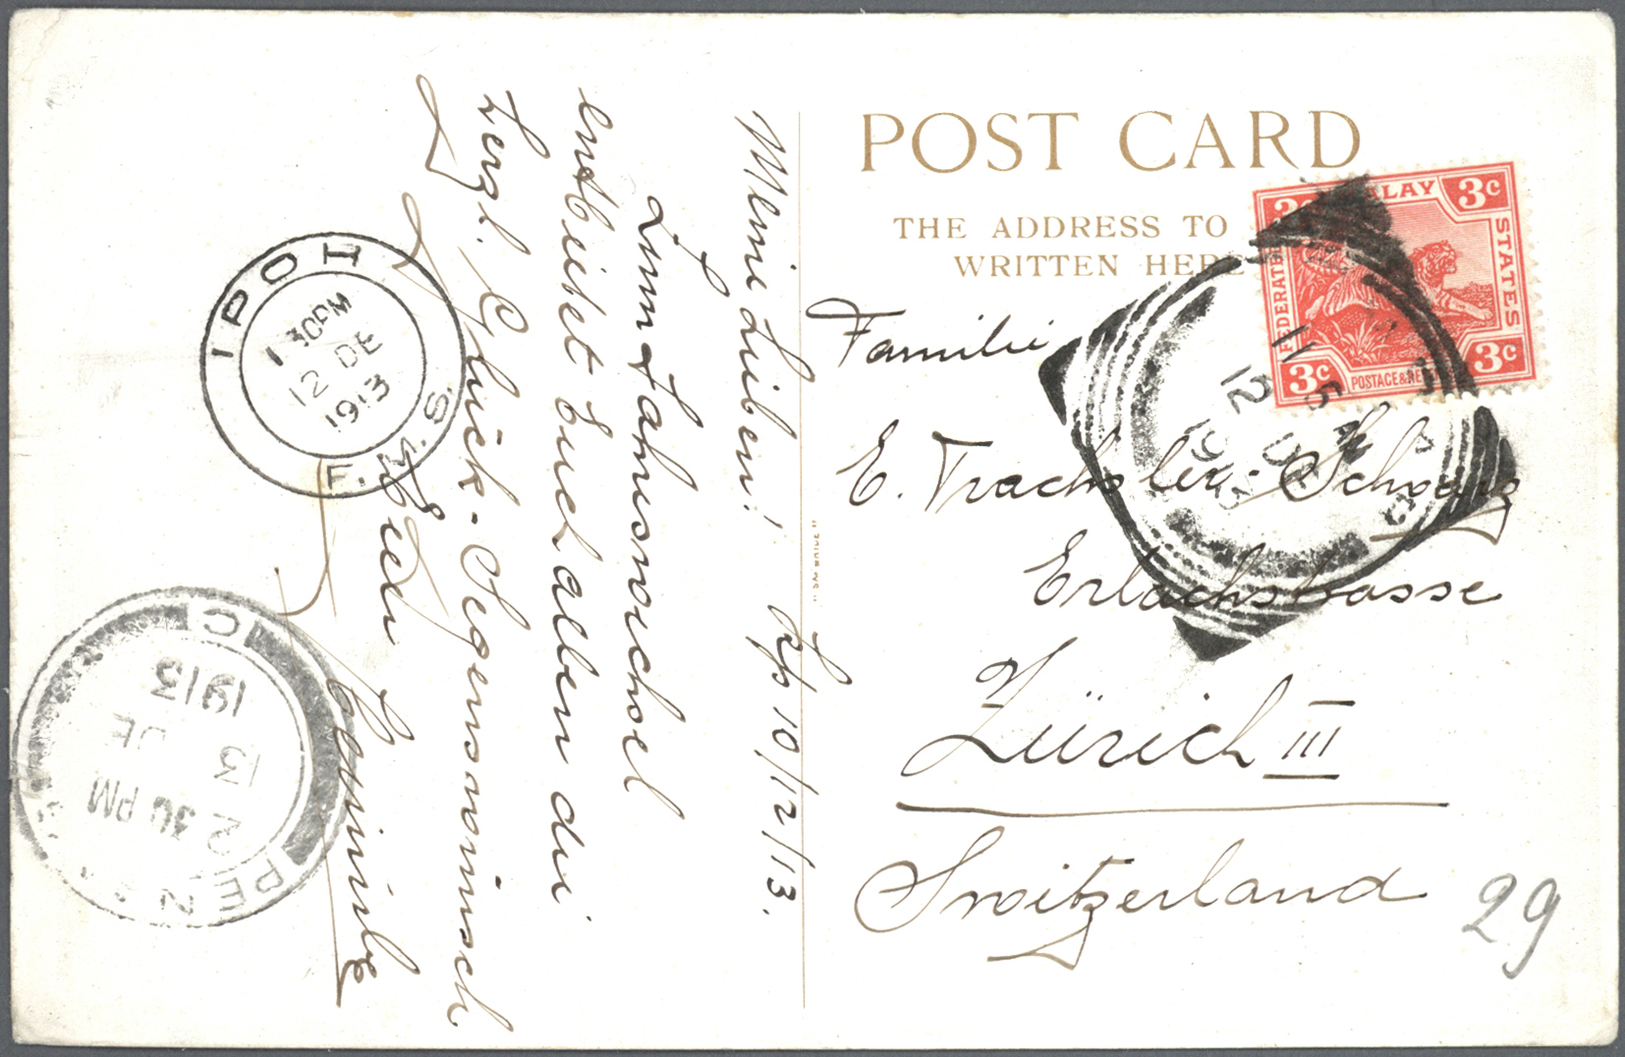 POST CARD
THE ADDRESS TO
WRITTEN HERE
MALAY
3c
3c
FEDERATED
STATES
3c
3c
POSTAGE & RE
11 15 AM
12 DE
1913
Familie
E. Trachsler-Schwarz
Erlachstrasse
Zürich III
Switzerland
29
Meine Lieben! 10/12/13.
Zum Jahreswechsel
entbietet Euch allen die
herzl. Glück- & Segenswünsche
Euer
IPOH
1 30PM
12 DE
1913
F.M.S.
PEN
2 30 PM
13 DE
1913